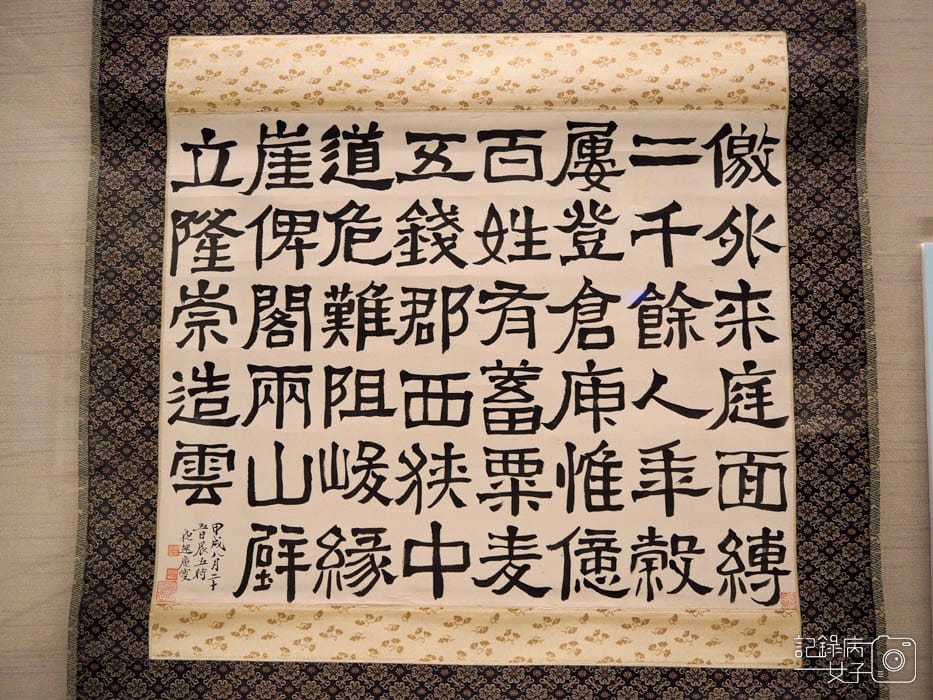 徼外来庭面縛
二千餘人年穀
屢登倉庾惟億
百姓有蓄粟麦
五錢郡西狹中
道危難阻峻緣
崖俾閣兩山壁
立隆崇造雲
甲戌八月二十
五日晨五時
夜起庵
記錄病
女子